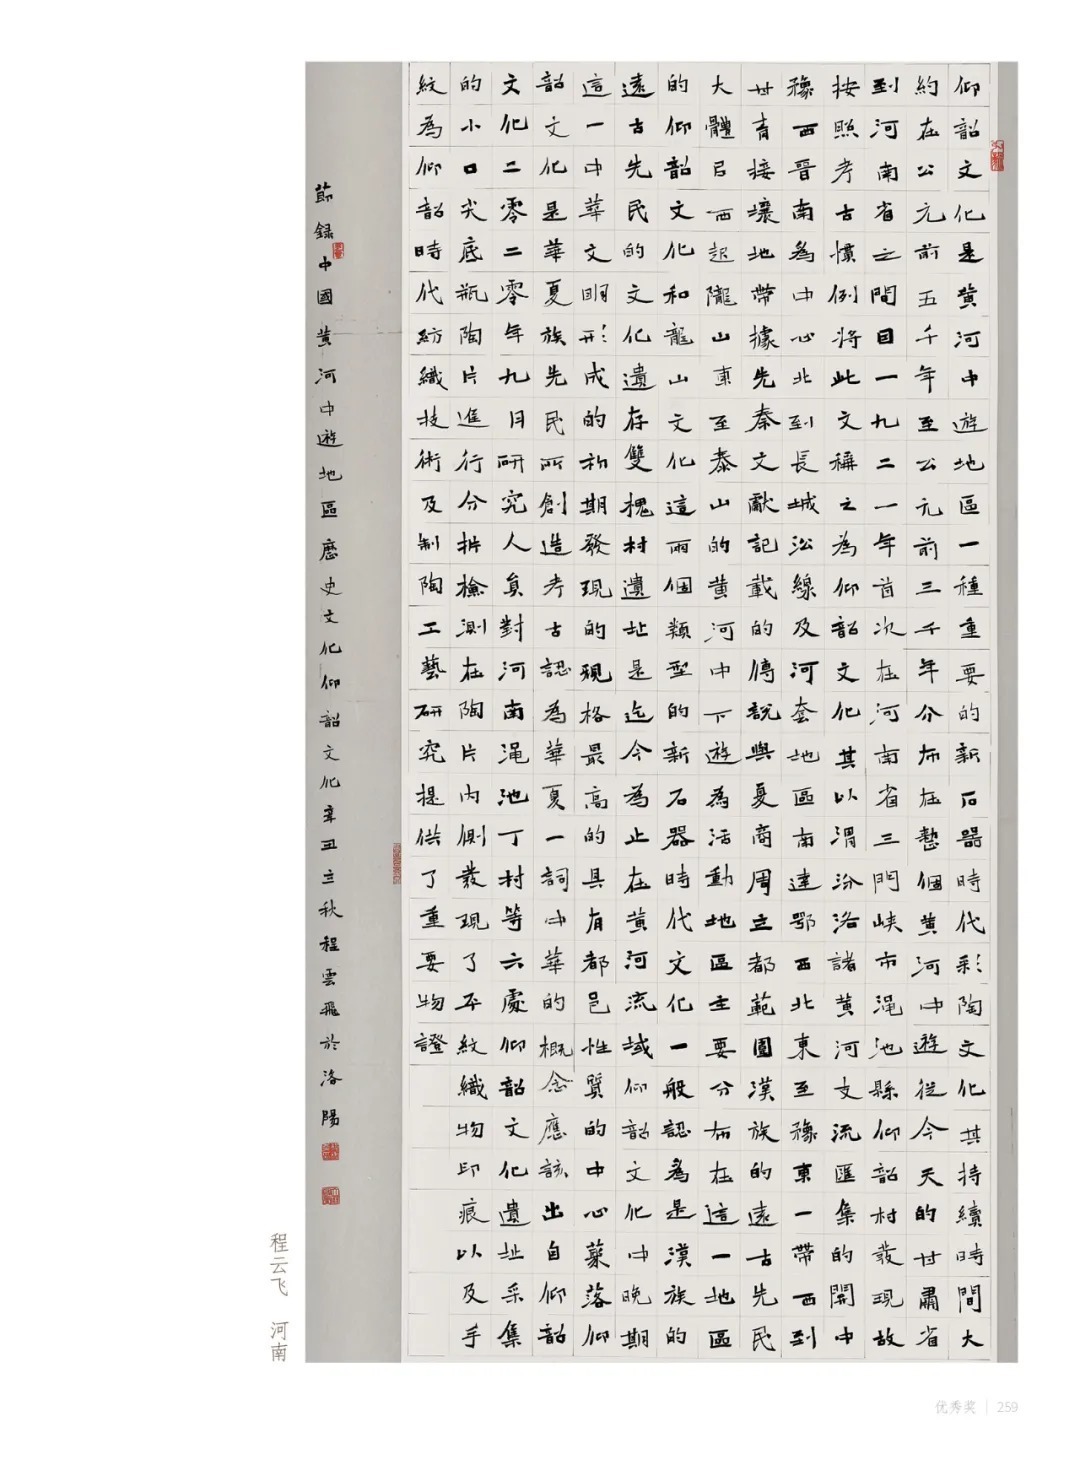 仰韶文化是黃河中遊地區一種重要的新石器時代彩陶文化其持續時間大
約在公元前五千年至公元前三千年分布在整個黃河中遊從今天的甘肅省
到河南省之間自一九二一年首次在河南省三門峽市澠池縣仰韶村發現故
按照考古慣例將此文稱之為仰韶文化其以渭汾洛諸黃河支流匯集的關中
豫西晉南為中心北到長城沿線及河套地區南達鄂西北東至豫東一帶西到
甘青接壤地帶據先秦文獻記載的傳說與夏商周立都範圍漢族的遠古先民
大體以西起隴山東至泰山的黃河中下遊為活動地區主要分布在這一地區
的仰韶文化和龍山文化這兩個類型的新石器時代文化一般認為是漢族的
遠古先民的文化遺存雙槐村遺址是迄今為止在黃河流域仰韶文化中晚期
這一中華文明形成的初期發現的規格最高的具有都邑性質的中心聚落仰
韶文化是華夏族先民所創造考古認為華夏一詞中華的概念應該出自仰韶
文化二零二零年九月研究人員對河南澠池丁村等六處仰韶文化遺址采集
的小口尖底瓶陶片進行分析檢測在陶片內側發現了平紋織物印痕以及手
紋為仰韶時代紡織技術及制陶工藝研究提供了重要物證
節錄中國黃河中遊地區歷史文化仰韶文化辛丑立秋程雲飛於洛陽
程云飞 河南
优秀奖 | 259